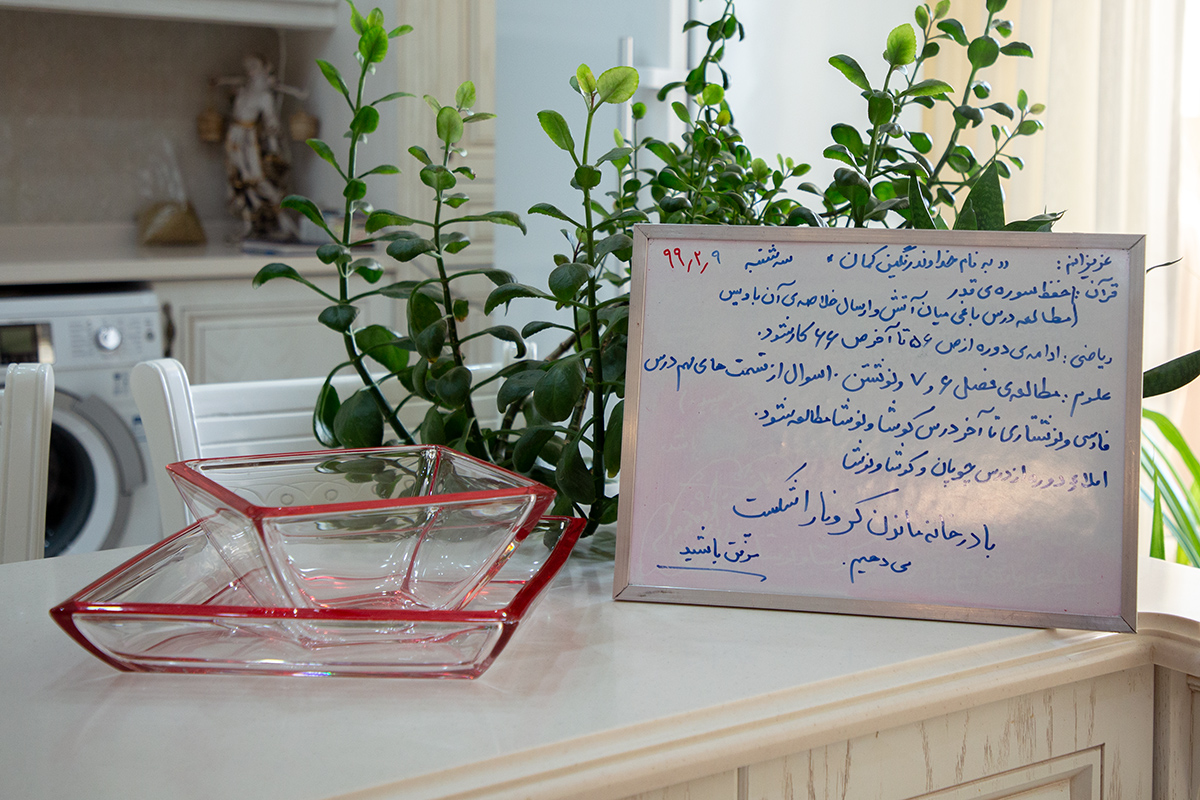 عزیزانم : « به نام خداوند رنگین کمان » سه شنبه ۹۹٫۲٫۹
قرآن : حفظ سوره ی قدر
مطالعه درس باغی میان آتش و ارسال خلاصه ی آن با ویس
ریاضی : ادامه ی دوره از ص ۵۶ تا آخر ص ۶۶ کار شود.
علوم : مطالعه ی فصل ۶ و ۷ و نوشتن ۱۰ سوال از قسمت های مهم درس
فارسی و نوشتاری تا آخر درس کوشا و نوشا مطالعه شود.
املا و دوره از درس چوپان و کوشا و نوشا
با در خانه ماندن کرونا را شکست
می دهیم.
موفق باشید